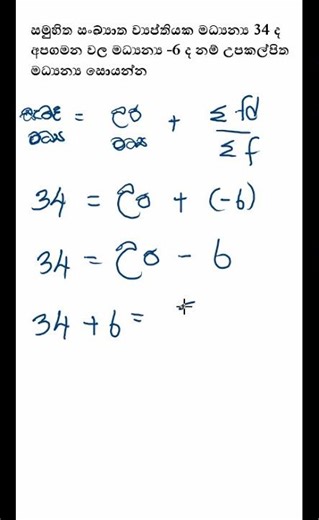 සමුහිත සංඛ්‍යාත ව්‍යප්තියක මධ්‍යන්‍ය 34 ද
අපගමන වල මධ්‍යන්‍ය -6 ද නම් උපකල්පිත
මධ්‍යන්‍ය සොයන්න
= උප + Σ fd
මධ්‍ය මධ්‍ය Σ f
34 = උප + (-6)
34 = උප - 6
34 + 6 =